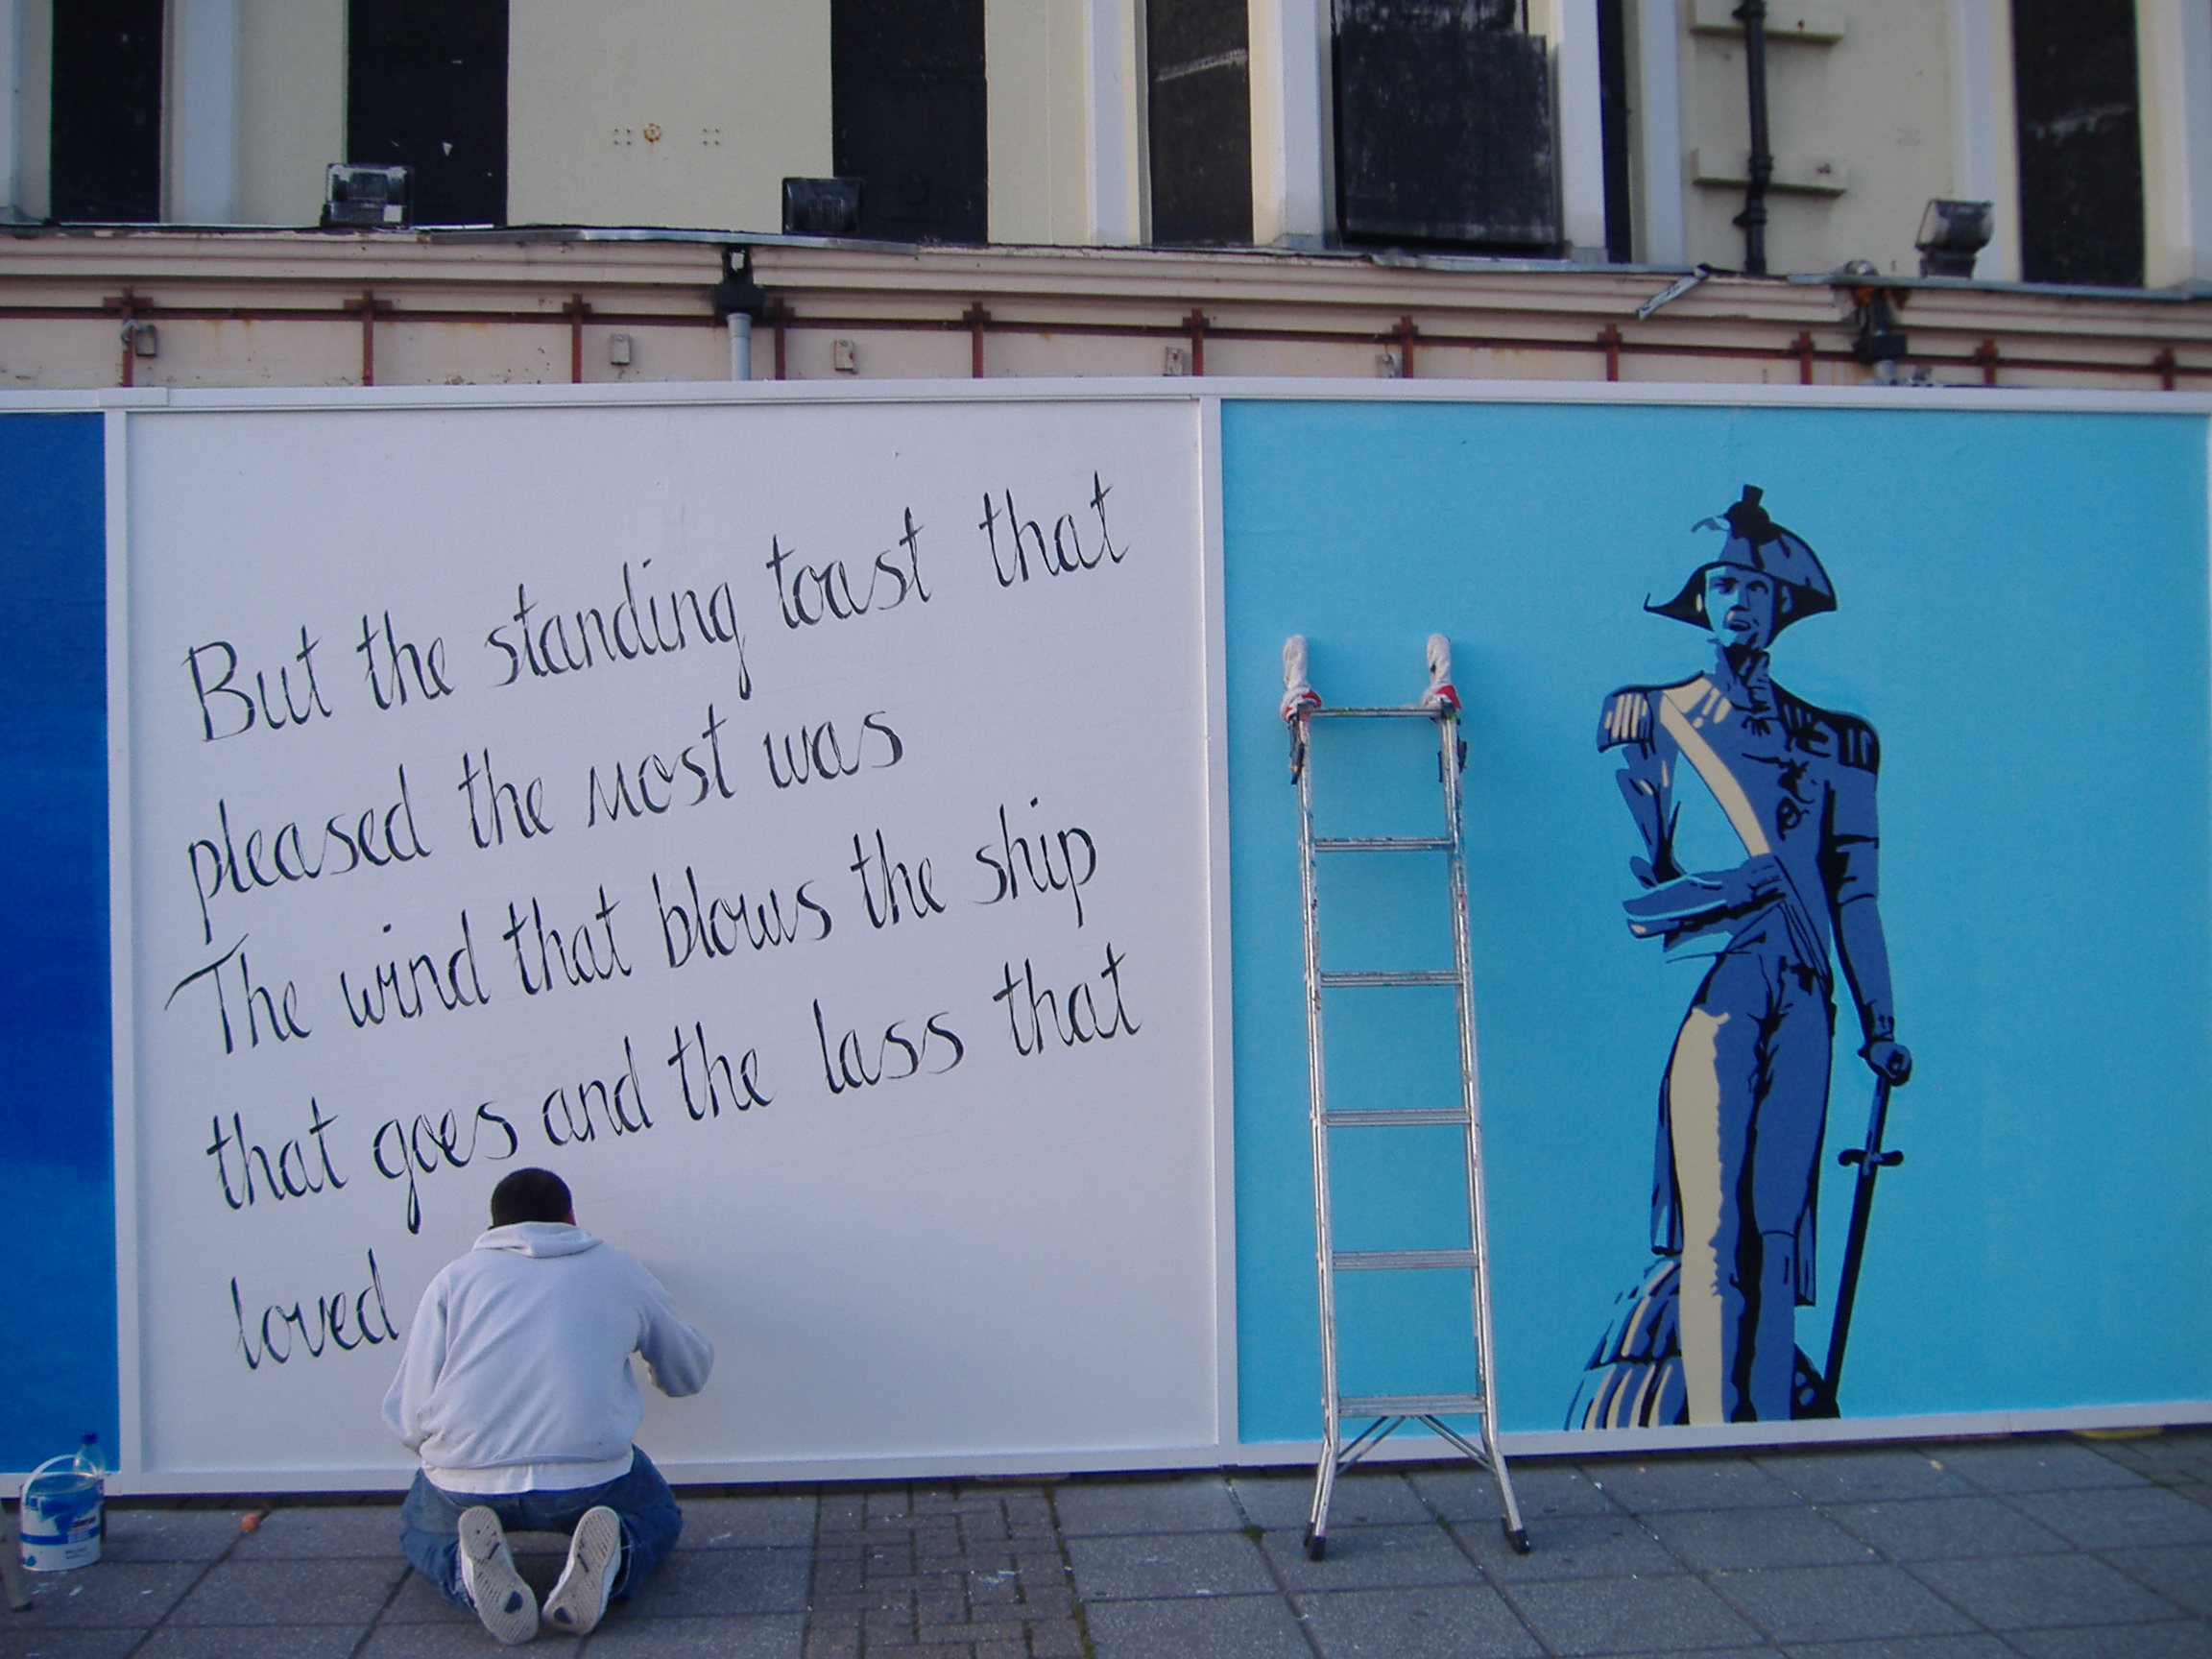 But the standing toast that
pleased the most was
The wind that blows the ship
that goes and the lass that
loved